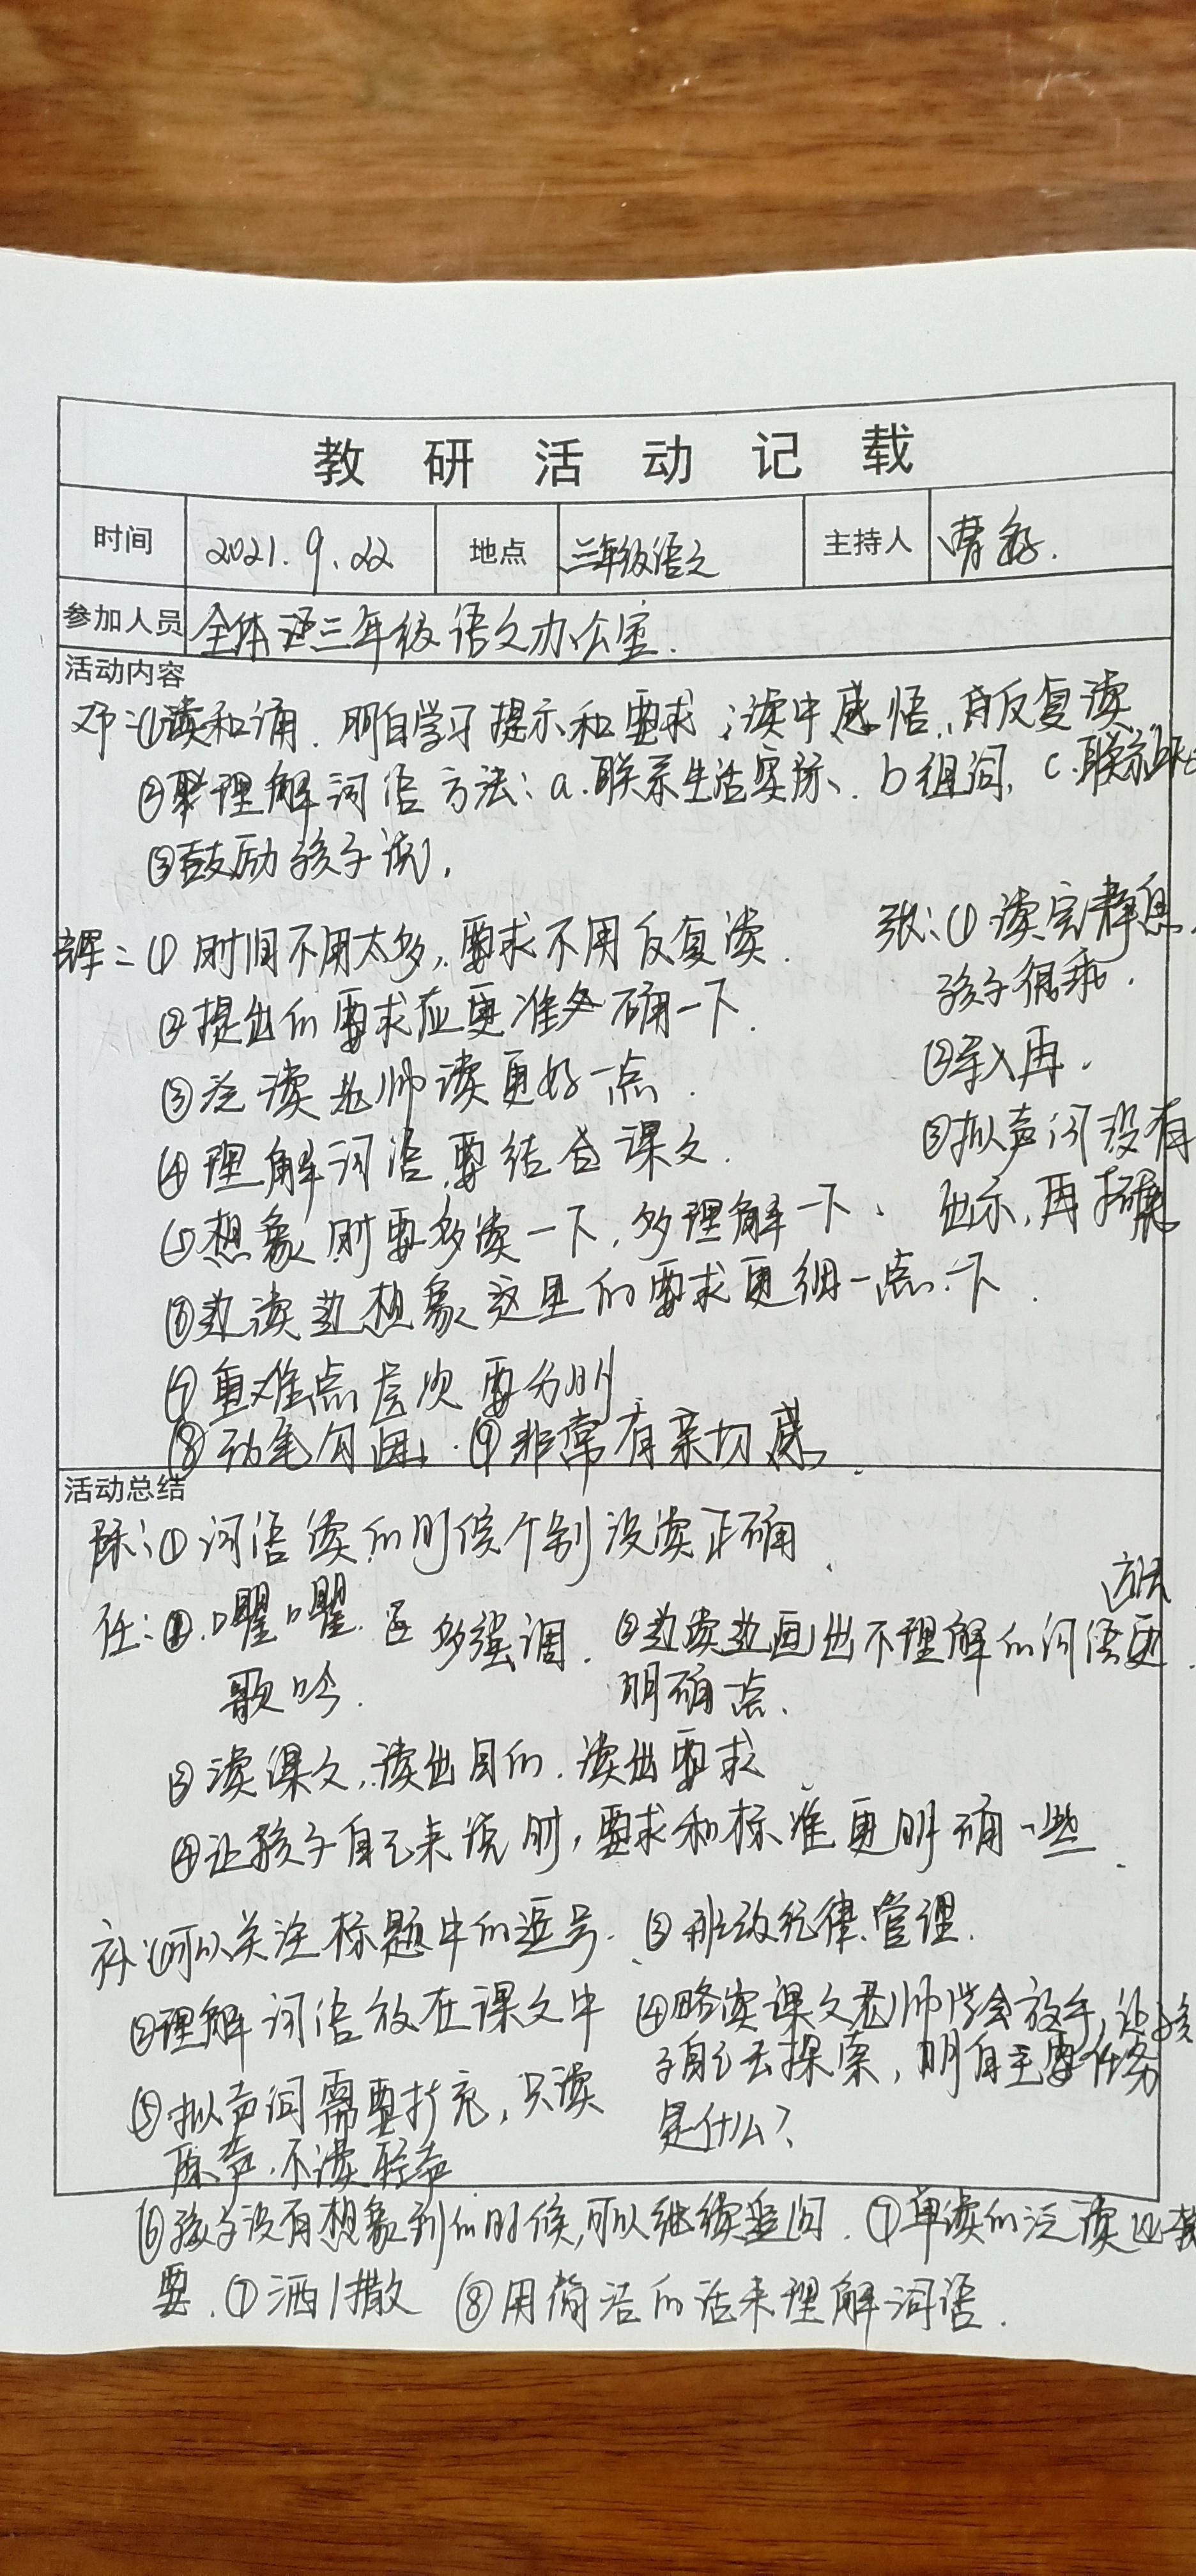 教研活动记载
时间 2021.9.22 地点 三年级语文 主持人
参加人员 全体三年级语文办公室.
活动内容
邓:①读和诵.明白学习提示和要求;读中感悟,反复读
②理解词语方法:a.联系生活实际、b组词,c.联系
③鼓励孩子说,
①时间不用太多,要求不用反复读.
②提出的要求应更准确一下.
③泛读老师读更好一点.
④理解词语,要结合课文.
⑤想象时要多读一下,多理解一下.
⑥边读边想象这里的要求更细一点一下.
⑦重难点层次要分明
⑧动笔勾画.⑨非常有亲切感.
张:①读完静息
孩子很乖.
②导入再.
③拟声词没有
出示,再拓展
活动总结
陈:①词语读的时候个别没读正确.
任:①.㘗㘗.多强调.
歌吟.
②边读边画出不理解的词语方法更
明确一点.
③读课文,读出目的.读出要求
④让孩子自己来说时,要求和标准更明确一些.
①可以关注标题中的逗号.
②理解词语放在课文中
③那动纪律.管理.
④略读课文老师学会放手,让孩
子自己去探索,明白主要任务
是什么?
⑤拟声词需要扩充,只读
原声.不读轻声
⑥孩子没有想象到的时候,可以继续追问.⑦单读的泛读
要.⑦洒/撒 ⑧用简洁的话来理解词语.